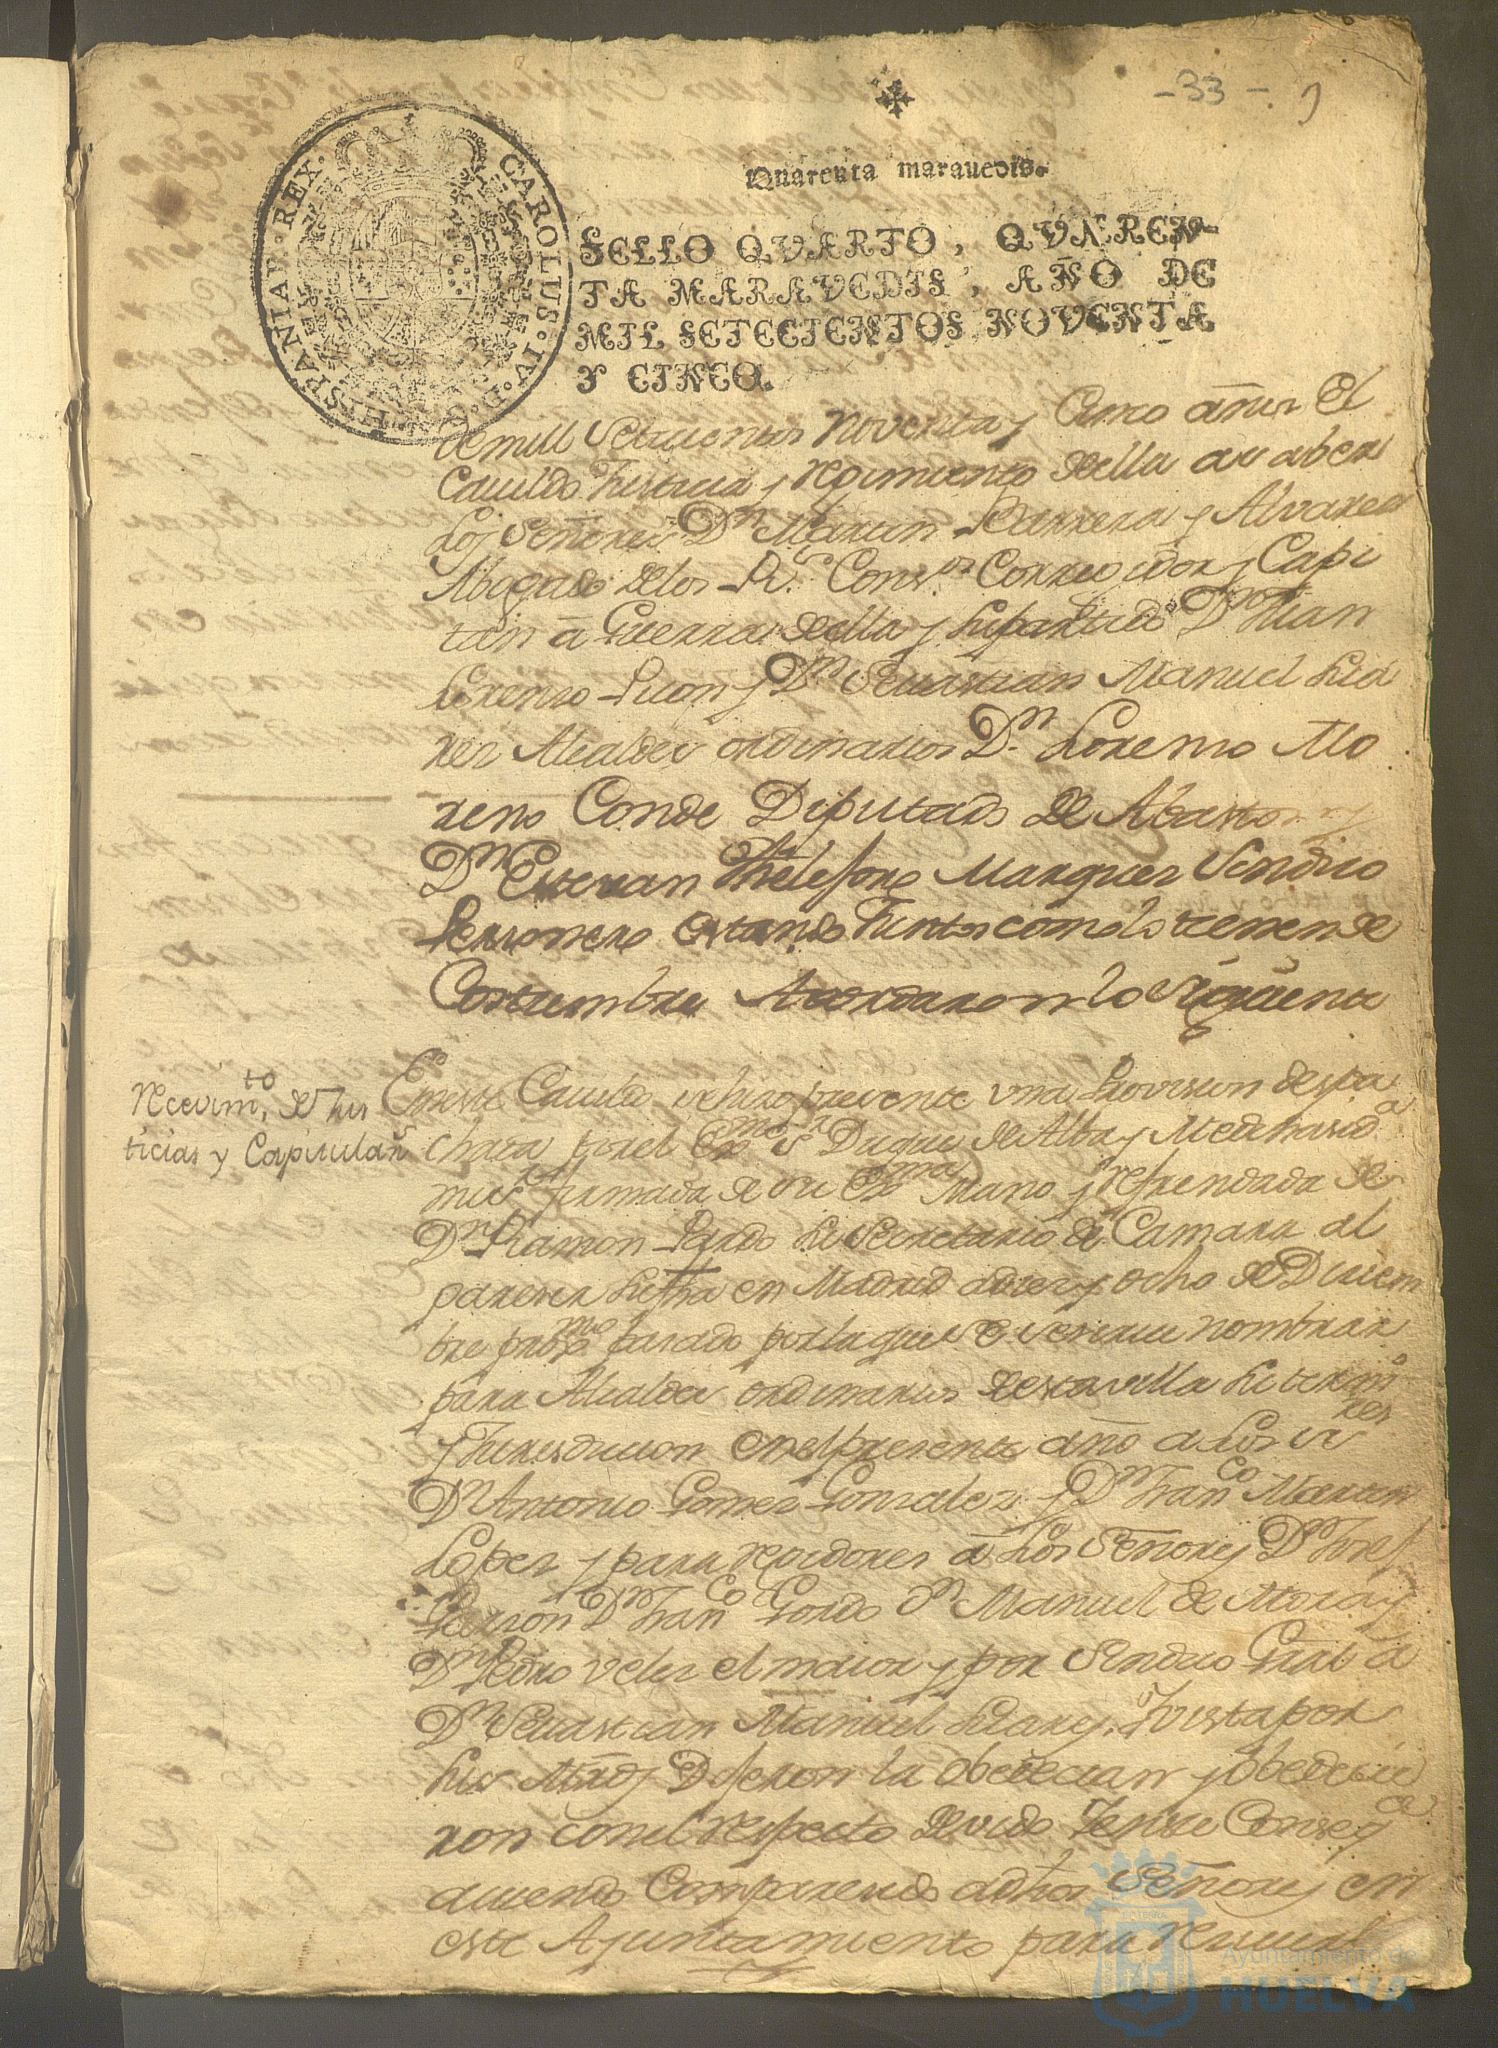 -33-
Quarenta marauedis.
CAROLUS · IV · D · G · HISPANIAR · REX ·
SELLO QVARTO, QVAREN-
TA MARAVEDIS, AÑO DE
MIL SETECIENTOS NOVENTA
Y CINCO.
demill Setecientos Noventa y Cinco años El
Cavildo Justicia y regimiento de ella asaber
Los Señores Dn Martin Barrera y Alvarez
Abogado de los Rs Consos Corregidor y Capi
tan â Guerra de ella y su partido Dn Juan
Lorenzo Picon y Dn Sevastian Manuel Sua
rez Alcaldes ordinarios Dn Lorenzo Mo
reno Conde Diputado de Abastos y
Dn Estevan Thelesforo Marquez Sindico
Personero estando Juntos como lo tienen de
Costumbre Acordaron lo Siguiente
Recivimto de Jus
ticias y Capitulars
En este Cavildo se hizo presente una Provision despa
chada por el Exmo Sr Duque de Alba y Medinasida
firmada de su Exma Mano y refrendada de
Dn Ramon Pardo su Secretario de Camara al
parecer su fha en Madrid a diez y ocho de Diziem
bre proxmo pasado por la que se sirve nombrar
para Alcaldes ordinarios de esta villa su termno
y Jurisdicion en el presente año a los Sres
Dn Antonio Gomez Gonzalez y Dn Franco Martin
Lopez y para regidores â los Señores Dn Josef
Garzon Dn Franco Gordo Dn Manuel de Mora y
Dn Pedro Velez el maior y por Sindico Gral â
Dn Sevastian Manuel Suarez. Y vista por
sus Mrds Dijeron la obedecian y obedecie
ron con el respeto devido Y en su Conseqa
aviendo Comparecido dhos Señores en
este Ayuntamiento para
Ayuntamiento de
HUELVA